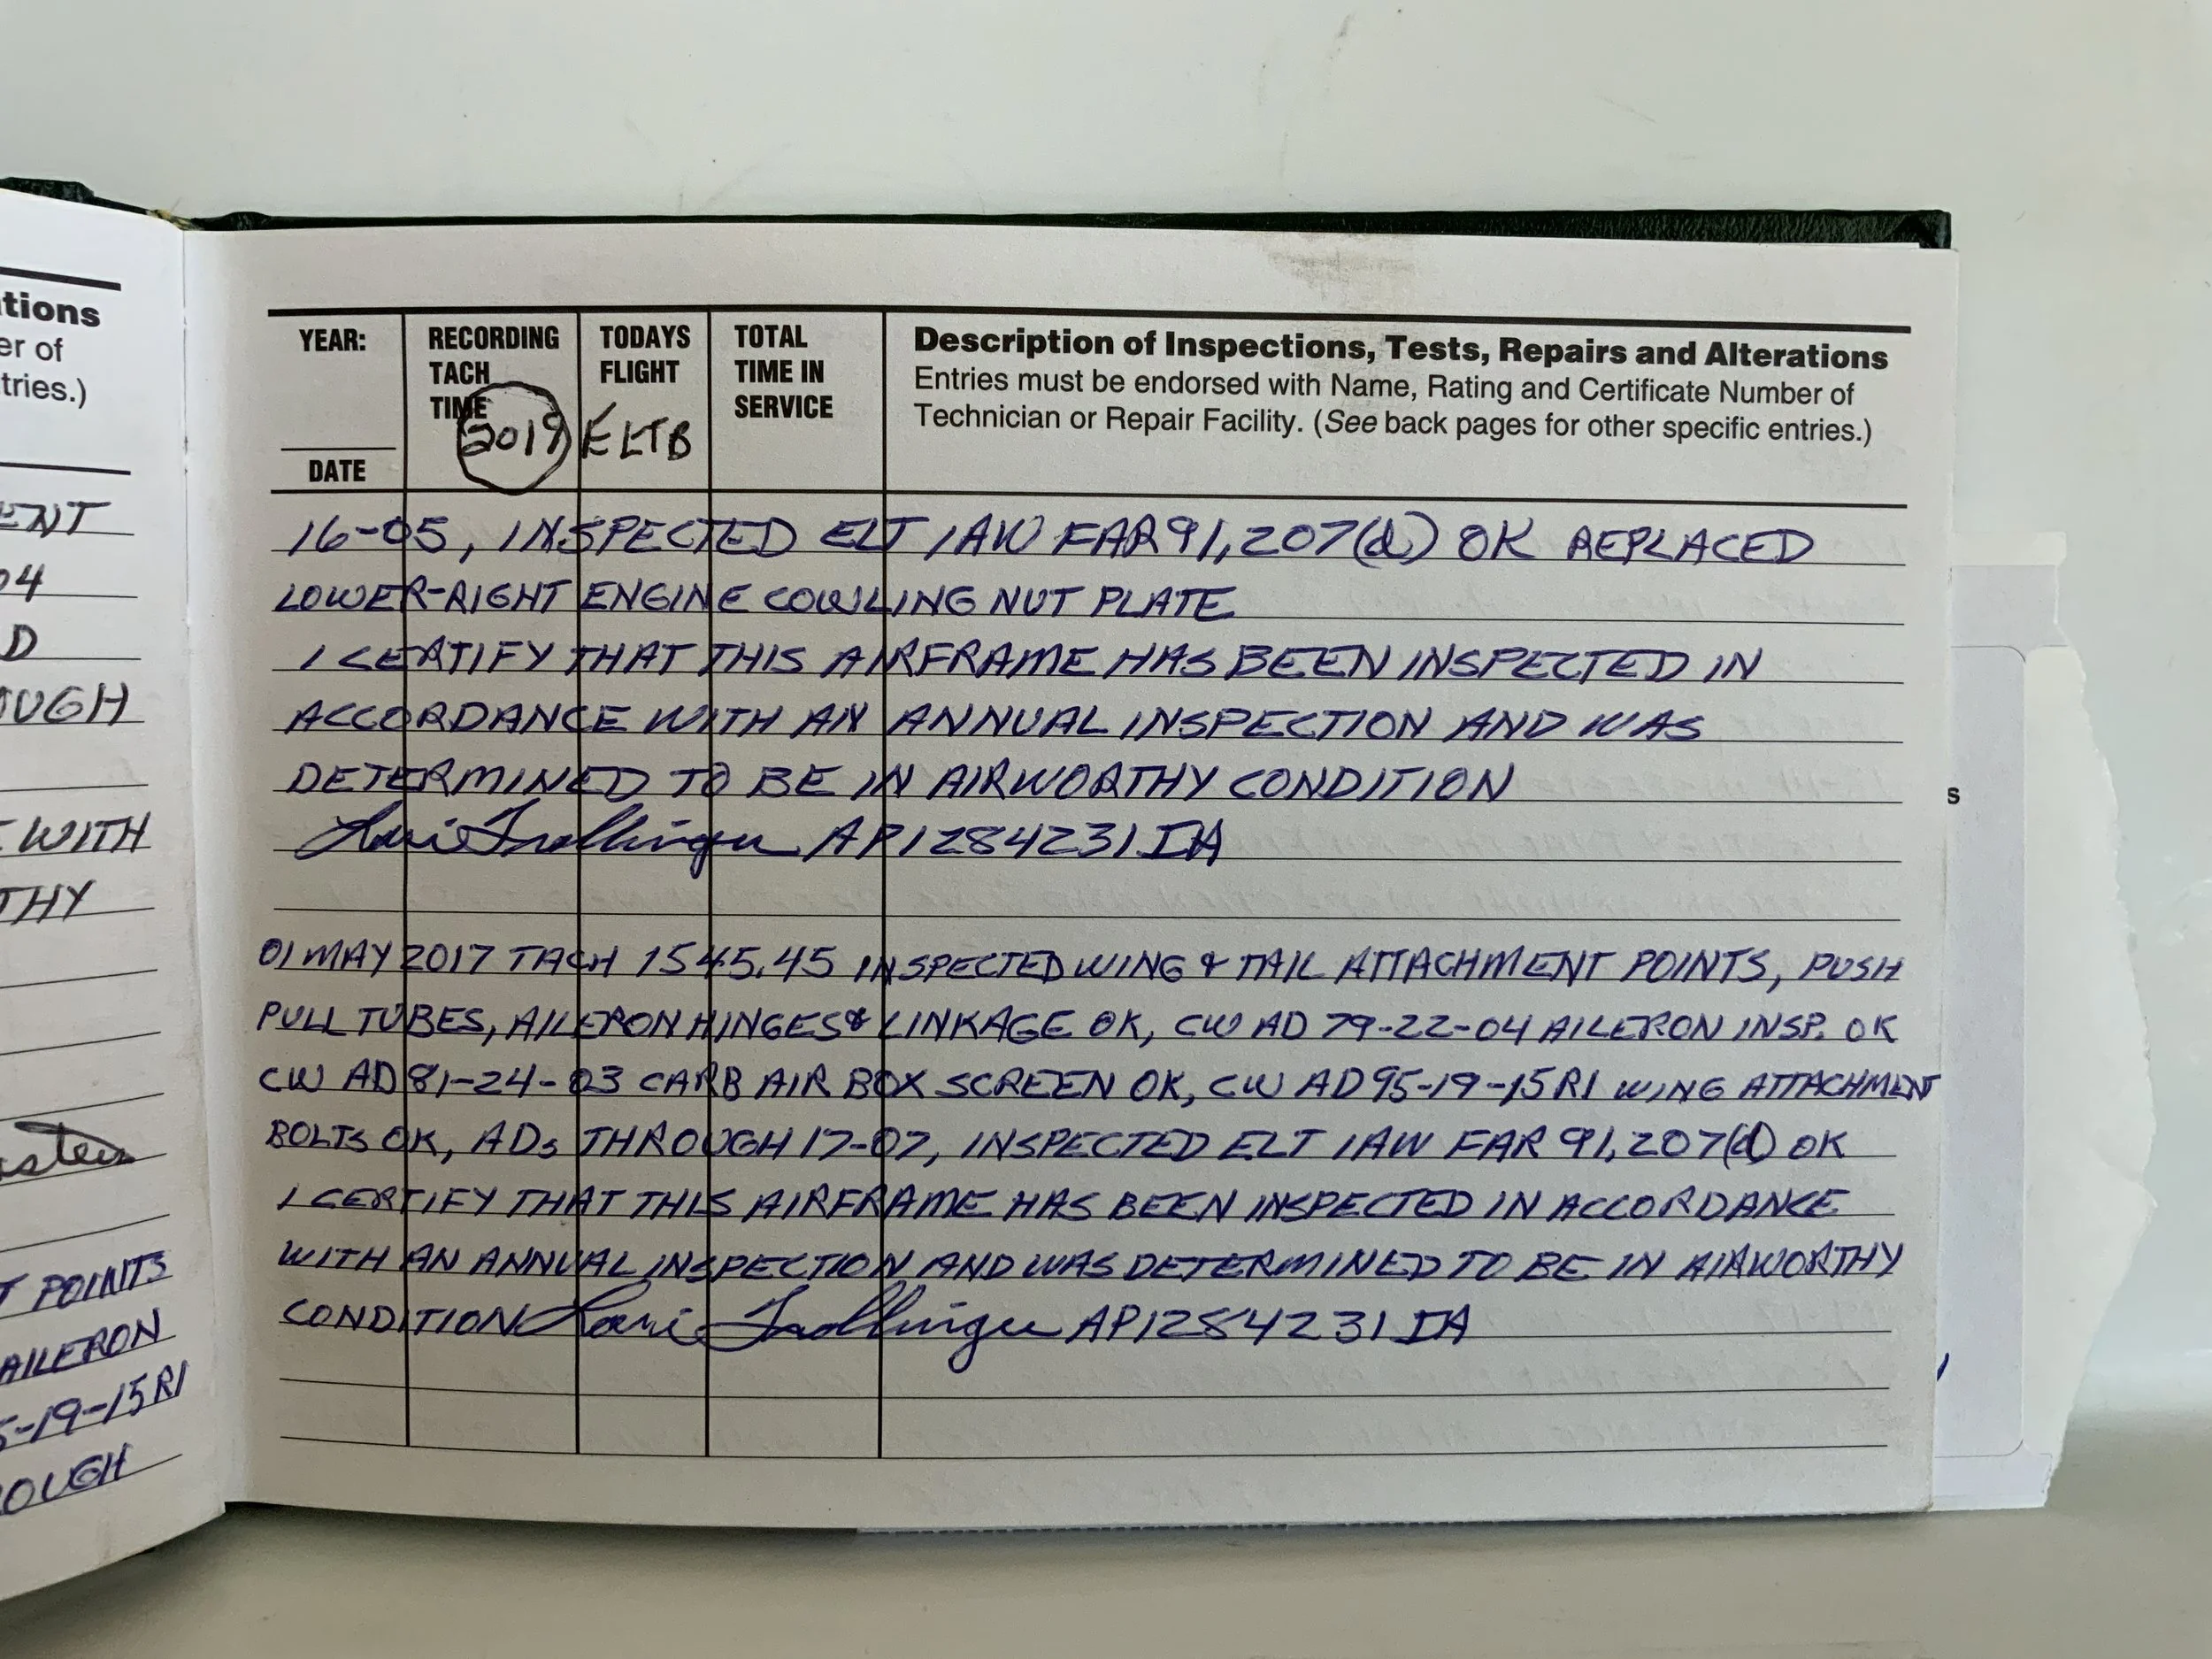 tions
er of
tries.)
ENT
04
D
OUGH
WITH
THY
T POINTS
AILERON
5-19-15R1
OUGH
YEAR:
DATE
RECORDING
TACH
TIME
2019
TODAYS
FLIGHT
ELTB
TOTAL
TIME IN
SERVICE
Description of Inspections, Tests, Repairs and Alterations
Entries must be endorsed with Name, Rating and Certificate Number of
Technician or Repair Facility. (See back pages for other specific entries.)
16-05, INSPECTED ELT IAW FAR 91.207(d) OK REPLACED
LOWER-RIGHT ENGINE COWLING NUT PLATE
I CERTIFY THAT THIS AIRFRAME HAS BEEN INSPECTED IN
ACCORDANCE WITH AN ANNUAL INSPECTION AND WAS
DETERMINED TO BE IN AIRWORTHY CONDITION
AP1284231 IA
01 MAY 2017 TACH 1545.45 INSPECTED WING & TAIL ATTACHMENT POINTS, PUSH
PULL TUBES, AILERON HINGES & LINKAGE OK, CW AD 79-22-04 AILERON INSP. OK
CW AD 81-24-03 CARB AIR BOX SCREEN OK, CW AD 95-19-15R1 WING ATTACHMENT
BOLTS OK, ADs THROUGH 17-07, INSPECTED ELT IAW FAR 91.207(d) OK
I CERTIFY THAT THIS AIRFRAME HAS BEEN INSPECTED IN ACCORDANCE
WITH AN ANNUAL INSPECTION AND WAS DETERMINED TO BE IN AIRWORTHY
CONDITION AP1284231 IA
s